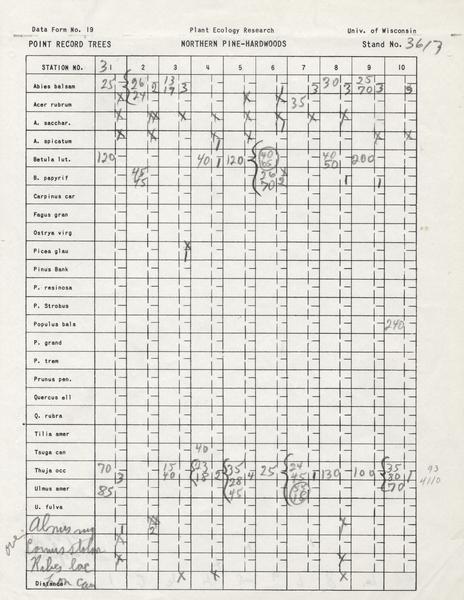 Data Form No. 19 Plant Ecology Research Univ. of Wisconsin
POINT RECORD TREES NORTHERN PINE-HARDWOODS Stand No. 3613
STATION NO. 31 2 3 4 5 6 7 8 9 10
Abies balsam 25 { 26 24 2 13 17 3 3 30 3 25 70 3
Acer rubrum X X X 35
A. sacchar. X X X X X X X
A. spicatum X X X X X X
Betula lut. 120 40 1 120 40 40 50 200
B. papyrif 45 45 70 2 1 1
Carpinus car
Fagus gran
Ostrya virg
Picea glau X 1
Pinus Bank
P. resinosa
P. Strobus
Populus bala 240
P. grand
P. trem
Prunus pen.
Quercus ell
Q. rubra
Tilia amer
Tsuga can 40
Thuja occ 70 3 15 40 { 13 18 2 { 35 28 45 4 25 { 24 45 1 130 100 { 35 80 70 1 93
4110
Ulmus amer 85
U. fulva
Alnus rug 1 X 2 X
Cornus stolon X
Ribes lac X X
Distance Lon can X X X